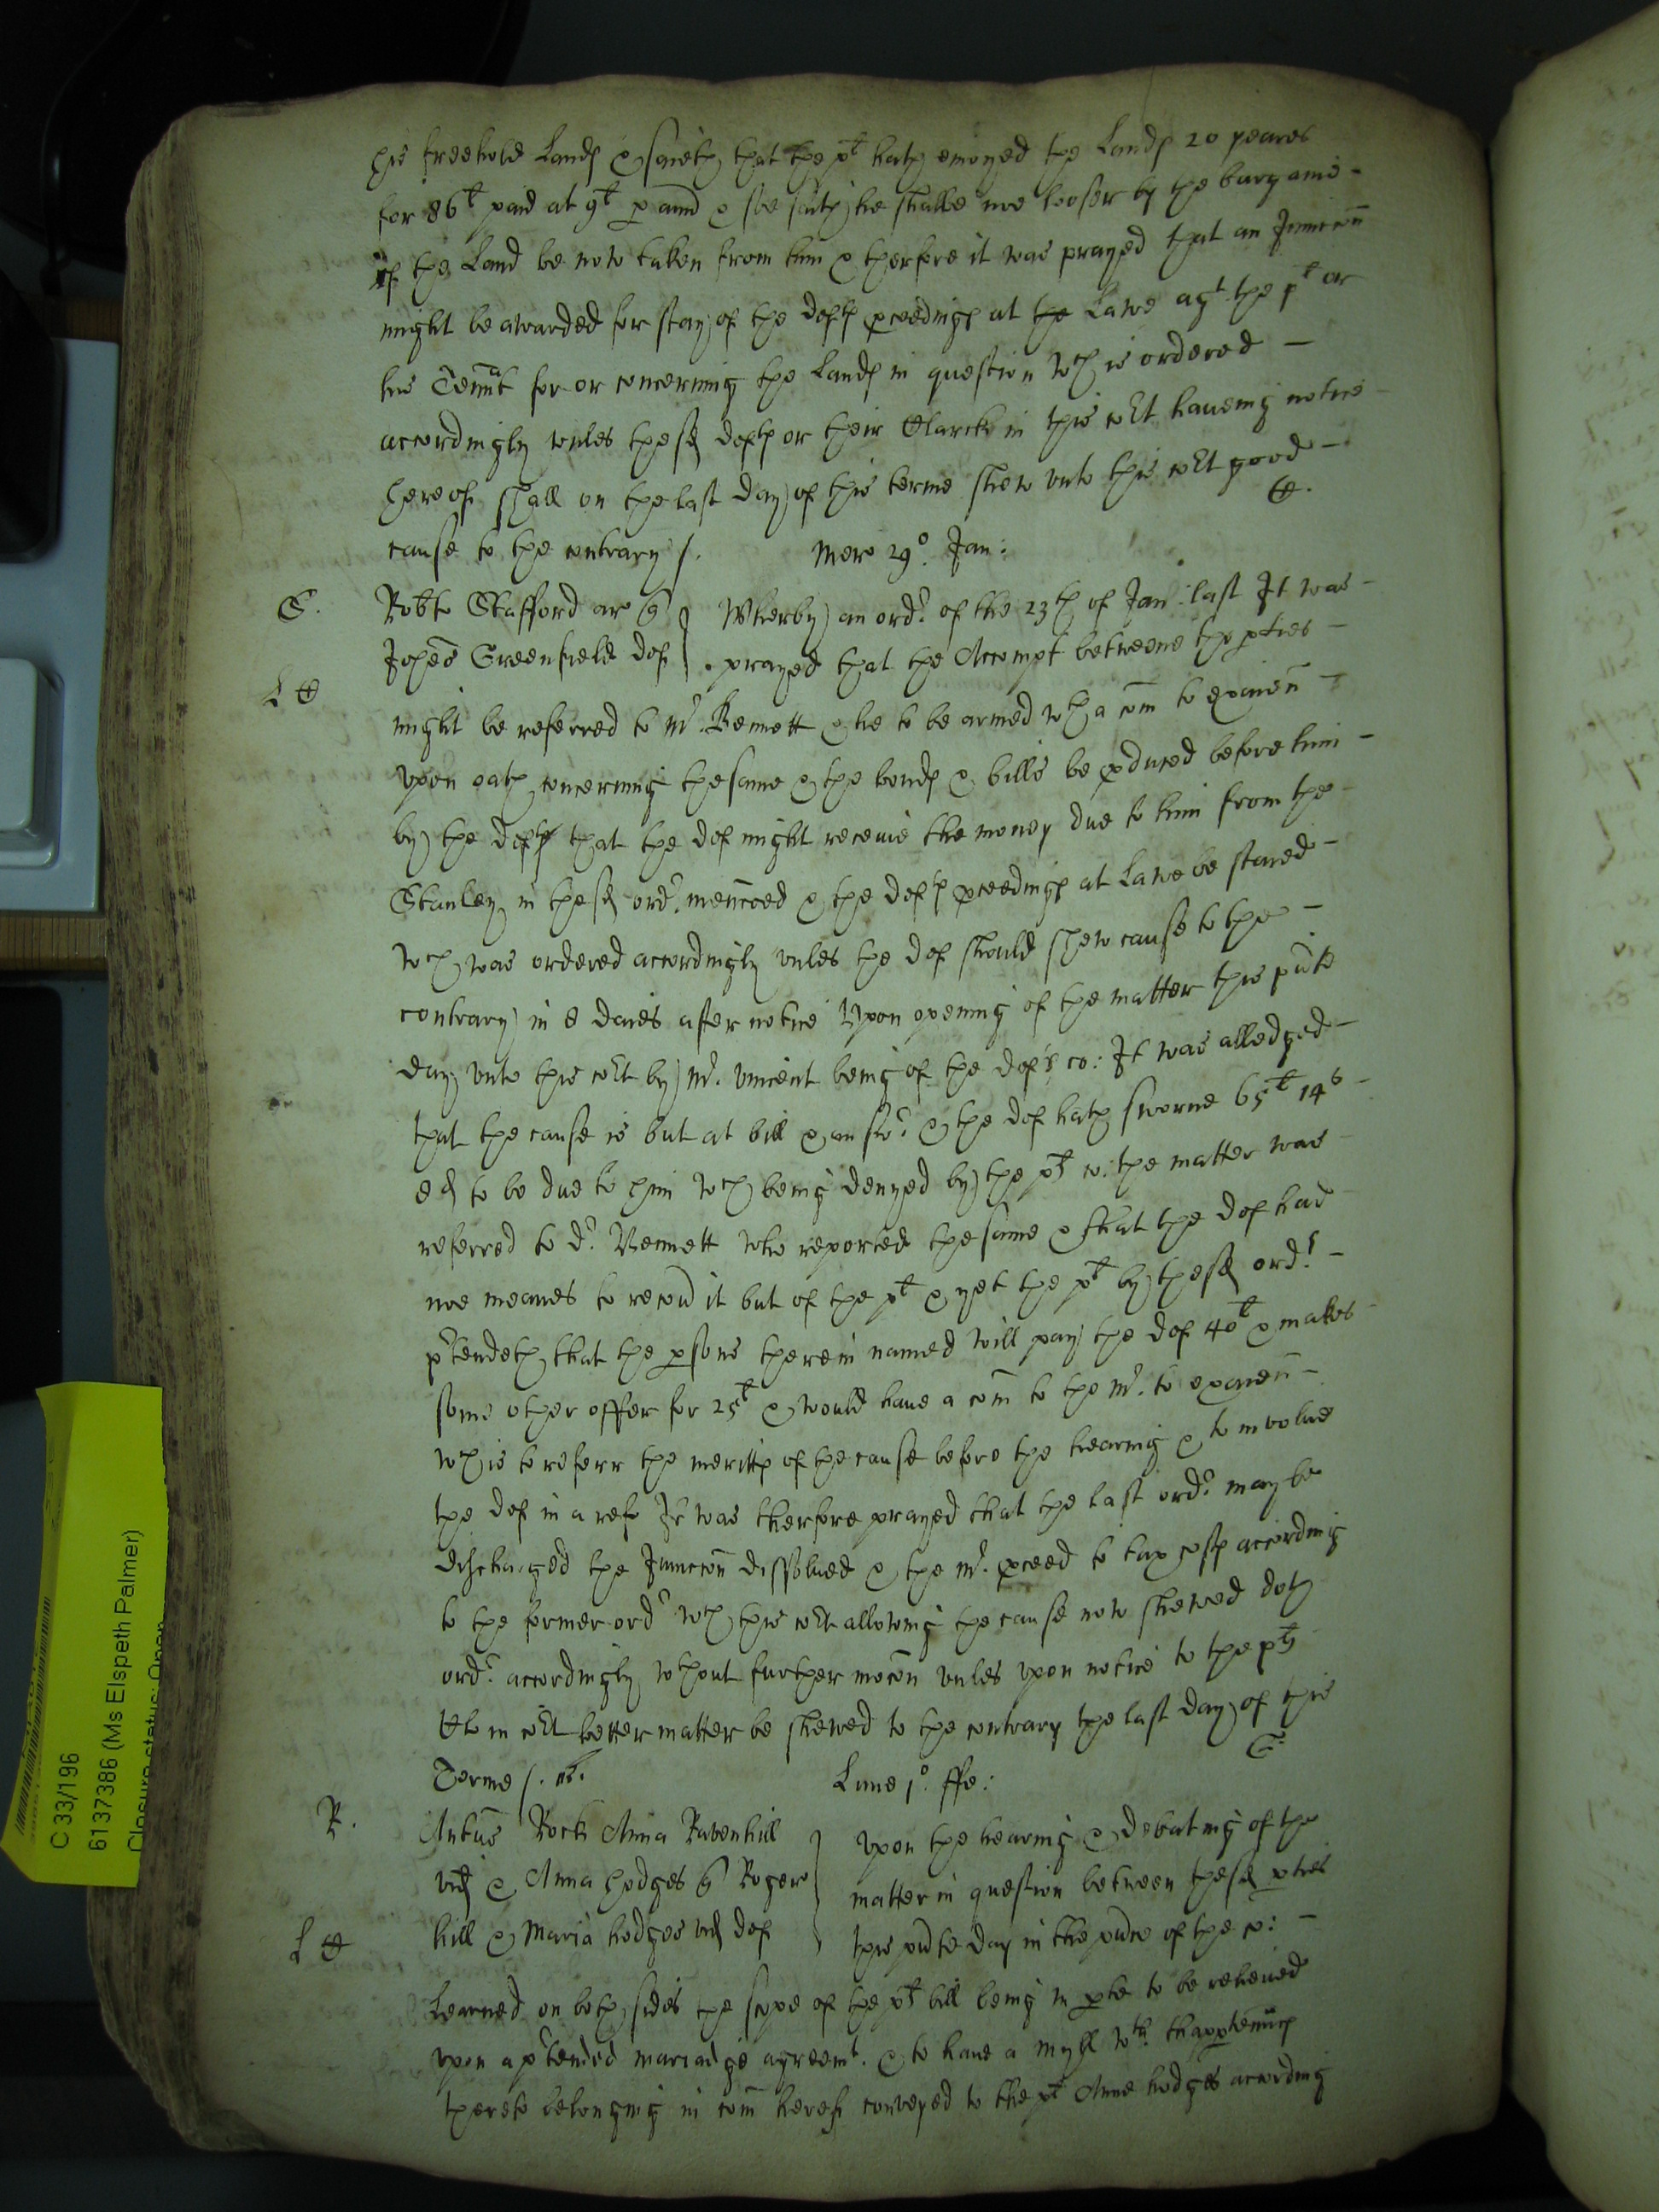 his freehold Lands & saieth that the plt hath enioyed the Lands 20 yeares
for 86l paid at 9l p ann & soe saith he shalbe noe looser by the bargaine -
if the Land be now taken from him & therfore it was prayed that an Iniuncōn
might be awarded for stay of the defts pceedings at the Lawe agt the plt or
his Tennt for or concerning the Lands in question wch is ordered -
accordingly vnles the sd defts or their Clarck in this coṛt haueing notice -
hereof shall on the last day of this terme shew vnto this coṛt good -
cause to the contrary /.
Merc 29o. Jan:
S.
Robto Stafford ar
Johēs Greenfield def
Wherby an ordr. of the 23th of Jan: last It was -
prayed that the Accompt betweene the pties -
might be referred to mr. Bennett & he to be armed wth a com to exaien -
vpon oath concerning the same & the bonds & bills be pduced before him -
by the deft that the def might receiue the money due to him from the -
Stanley in the sd ordr. mencōed & the defts pceedings at Lawe be staied -
wch was ordered accordingly vnles the def should shew cause to the -
contrary in 8 daies after notice Vpon opening of the matter this pnte
day vnto this coṛt by mr. Vincent being of the defts co: It was alledged -
that the cause is but at bill & answr. & the def hath sworne 65l 14s -
8d to be due to him wch being denyed by the plts co: the matter was
referred to dr. Bennett who reported the same & that the def had
noe meanes to recou it but of the plt & yet the plt by the sd ordr. -
prtendeth that the psons therein named will pay the def 40l & makes
some other offer for 25l & would haue a com to the mr. to exaien -
wch is to referr the meritts of the cause before the hearing & to involue
the def in a refe It was therfore prayed that the last ordr. may be
discharged the Iniuncōn dissolued & the mr. pceed to tax costs according
to the former ordr wch this coṛt allowing the cause now shewed doth
ordr. accordingly wthout further mocōn vnles vpon notice to the plts
Cl in coṛt better matter be shewed to the contrary the last day of this
Terme /.
Lune 1o. ffe:
R.
Antus Rock Anna Ravenhill
vid & Anna Hodges Rogero
hill & Maria hodges vid def
vpon the hearing & debating of the
matter in question between the sd pties
this pnte day in the pnce of the co: -
Learned on both sides the scope of the plts bill being in pte to be releiued
vpon a prtended mariadge agreemt. & to haue a myll wth. thapptennces
thereto belonging in com heref conveyed to the plt Anne hodges according
C 33/196
6137386 (Ms Elspeth Palmer)
Closure status: Open